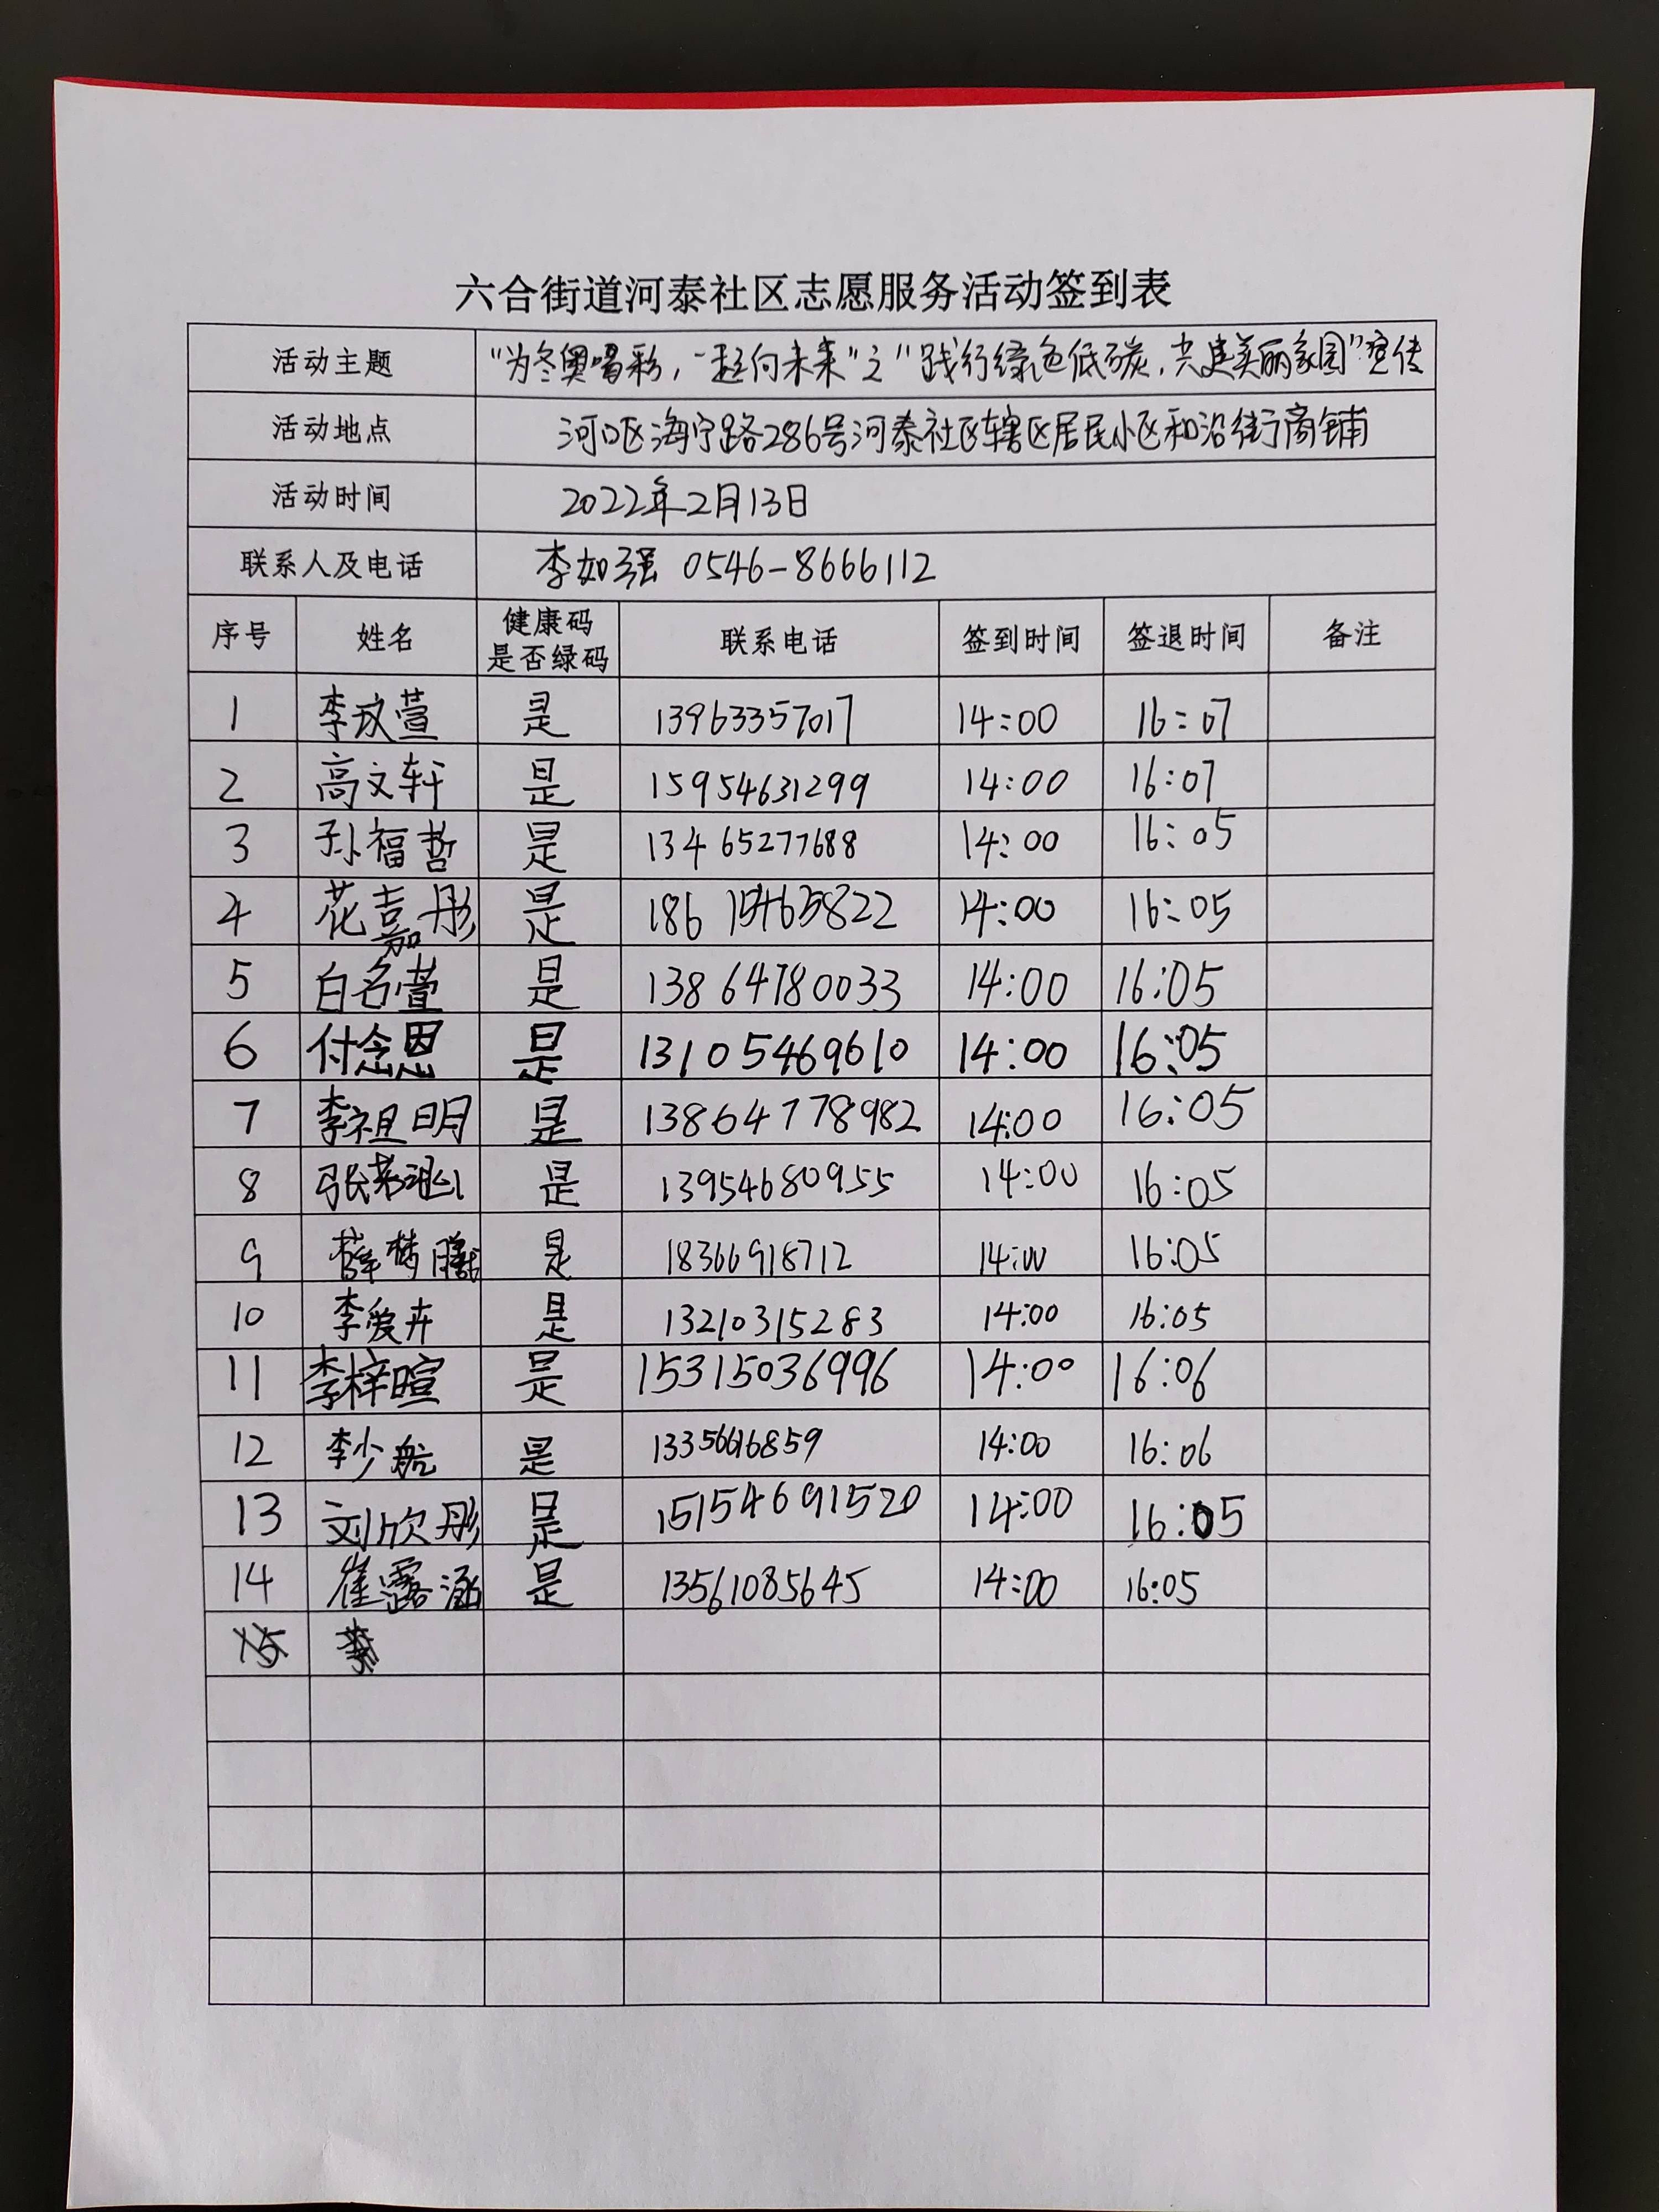 六合街道河泰社区志愿服务活动签到表
活动主题 "为冬奥喝彩,一起向未来"之"践行绿色低碳,共建美丽家园"宣传
活动地点 河口区海宁路286号河泰社区辖区居民小区和沿街商铺
活动时间 2022年2月13日
联系人及电话 李如强 0546-8666112
序号 姓名 健康码是否绿码 联系电话 签到时间 签退时间 备注
1 李玟萱 是 13963357017 14:00 16:07
2 高文轩 是 15954631299 14:00 16:07
3 孙福哲 是 13465277688 14:00 16:05
4 花嘉彤 是 18615465822 14:00 16:05
5 白名萱 是 13864780033 14:00 16:05
6 付念恩 是 13105469610 14:00 16:05
7 李祖明 是 13864778982 14:00 16:05
8 张 是 13954680955 14:00 16:05
9 薛梦 是 18366918712 14:00 16:05
10 李爱卉 是 13210315283 14:00 16:05
11 李梓暄 是 15315036996 14:00 16:06
12 李少航 是 14:00 16:06
13 刘欣彤 是 15154691520 14:00 16:05
14 崔露涵 是 13561085645 14:00 16:05
15